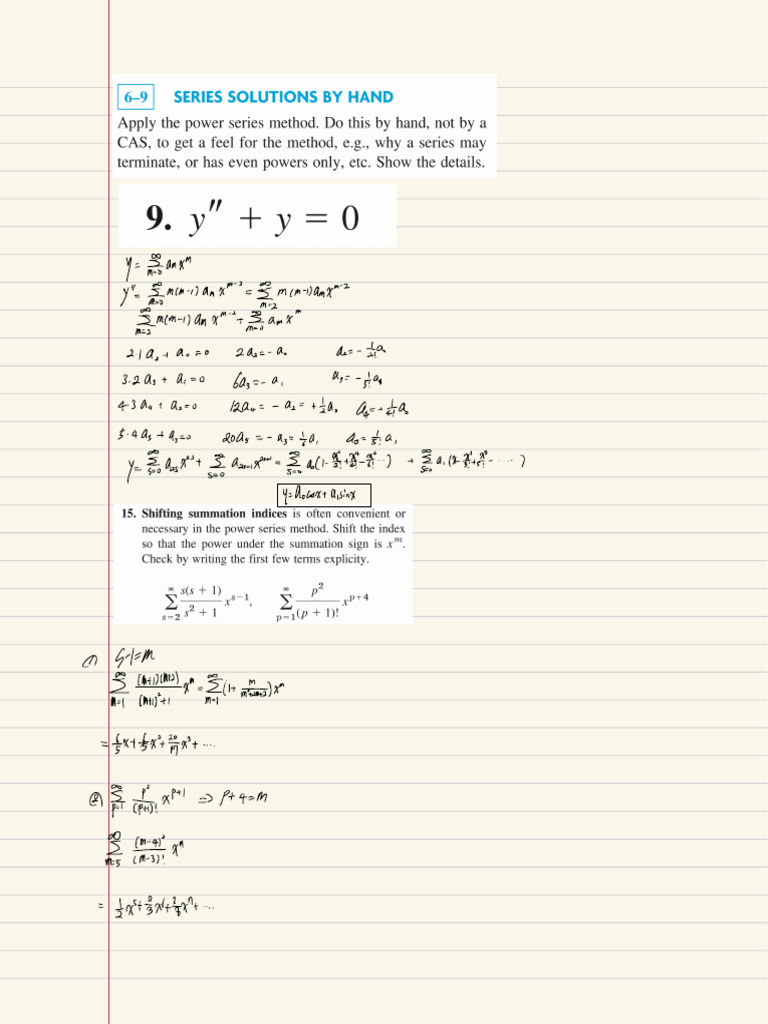 6–9 SERIES SOLUTIONS BY HAND
Apply the power series method. Do this by hand, not by a
CAS, to get a feel for the method, e.g., why a series may
terminate, or has even powers only, etc. Show the details.
9. y″ + y = 0
y = ∑_{m=0}^{∞} aₘxᵐ
y″ = ∑_{m=0}^{∞} m(m-1) aₘ x^{m-2} = ∑_{m=2}^{∞} m(m-1)aₘx^{m-2}
∑_{m=2}^{∞} m(m-1) aₘ x^{m-2} + ∑_{m=0}^{∞} aₘ xᵐ
2·1a₂ + a₀ = 0 2a₂ = -a₀ a₂ = -1/2! a₀
3·2a₃ + a₁ = 0 6a₃ = -a₁
4·3a₄ + a₂ = 0 12a₄ = -a₂ = +1/2 a₀ a₄ = +1/4! a₀
5·4a₅ + a₃ = 0 20a₅ = -a₃ = 1/6 a₁ = 1/5! a₁
y = ∑_{s=0}^{∞} a₂ₛx^{2s} + ∑_{s=0}^{∞} a_{2s+1}x^{2s+1} = ∑_{s=0}^{∞} a₀(1 - x²/2! + x⁴/4! - x⁶/6! ···) + ∑_{s=0}^{∞} a₁(x - x³/3! + x⁵/5! - ····)
y = a₀cosx + a₁sinx
15. Shifting summation indices is often convenient or
necessary in the power series method. Shift the index
so that the power under the summation sign is xᵐ.
Check by writing the first few terms explicity.
∑_{s=2}^{∞} s(s + 1)/(s² + 1) x^{s-1}, ∑_{p=1}^{∞} p²/(p + 1)! x^{p+4}
(1) s-1=m
∑_{m=1}^{∞} (m+1)(m+2)/((m+1)²+1) xᵐ = ∑_{m=1}^{∞} (1 + m/(m²+2m+2)) xᵐ
= 6/5 x + 6/5 x² + 20/17 x³ + ····
(2) ∑_{p=1}^{∞} p²/(p+1)! x^{p+1} => p+4=m
∑_{m=5}^{∞} (m-4)²/(m-3)! xᵐ
= 1/2 x⁵ + 2/3 x⁶ + 3/8 x⁷ + ····